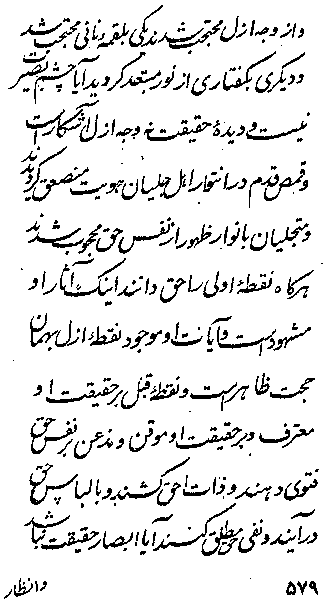 و از وجه ازل محتجب شدند یکی بلقمهٔ نانی محتجب شد
و دیگری بگفتاری از نور مبتعد گردید آیا چشم بصیرت
نیست و دیدهٔ حقیقت نه وجه ازل آشکار است
و قمص قدم در انتوار اهل جلیان هویت منصعق گردیدند
و متجلیان بانوار ظهور از نفس حق محجوب شدند
هرگاه نقطهٔ اولی را حق دانند اینک آثار او
مشهود است و آیات او موجود نقطهٔ ازل بهمان
حجت ظاهر است و نقطهٔ قبل بر حقیقت او
معترف و بر حقیقت او موقن و مذعن بر نفس حق
فتوی دهند و ذات حق کشند و بالباس حق
درآیند و نفی حق مطلق کنند آیا ابصار حقیقت نباشد
۵۷۹ و انظار